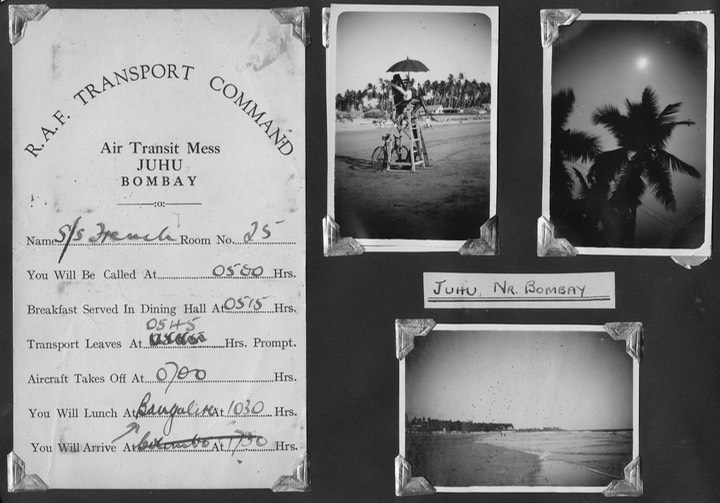 R.A.F. TRANSPORT COMMAND
Air Transit Mess
JUHU
BOMBAY
Name S/S French Room No. 25
You Will Be Called At 0500 Hrs.
Breakfast Served In Dining Hall At 0515 Hrs.
0545
Transport Leaves At Hrs. Prompt.
Aircraft Takes Off At 0700 Hrs.
You Will Lunch At Bangalore At 1030 Hrs.
You Will Arrive At Colombo At 1730 Hrs.
JUHU, NR. BOMBAY